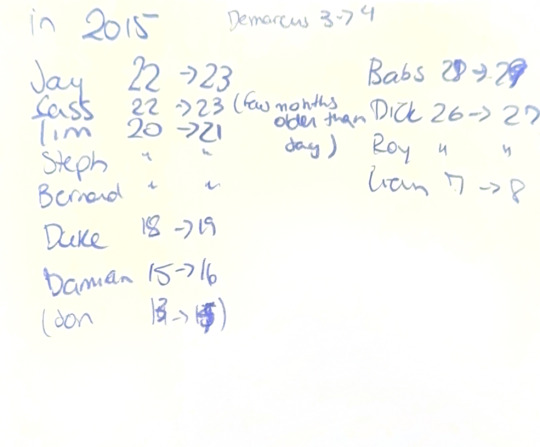 in 2015
Demarcus 3->4
Jay 22 ->23
Cass 22 ->23 (few months older than Jay)
Tim 20 ->21
Steph " "
Bernard " "
Duke 18 ->19
Damian 15->16
(don
Babs ->
Dick 26 -> 27
Roy " "
7 -> 8